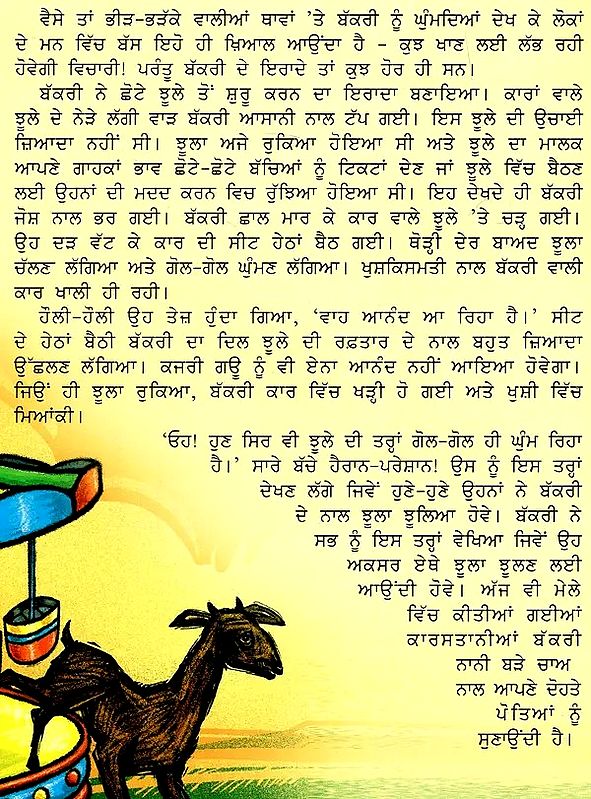 ਵੈਸੇ ਤਾਂ ਭੀੜ-ਭੜੱਕੇ ਵਾਲੀਆਂ ਥਾਵਾਂ ’ਤੇ ਬੱਕਰੀ ਨੂੰ ਘੁੰਮਦਿਆਂ ਦੇਖ ਕੇ ਲੋਕਾਂ
ਦੇ ਮਨ ਵਿੱਚ ਬੱਸ ਇਹੋ ਹੀ ਖ਼ਿਆਲ ਆਉਂਦਾ ਹੈ - ਕੁਝ ਖਾਣ ਲਈ ਲੱਭ ਰਹੀ
ਹੋਵੇਗੀ ਵਿਚਾਰੀ! ਪਰੰਤੂ ਬੱਕਰੀ ਦੇ ਇਰਾਦੇ ਤਾਂ ਕੁਝ ਹੋਰ ਹੀ ਸਨ।
ਬੱਕਰੀ ਨੇ ਛੋਟੇ ਝੂਲੇ ਤੋਂ ਸ਼ੁਰੂ ਕਰਨ ਦਾ ਇਰਾਦਾ ਬਣਾਇਆ। ਕਾਰਾਂ ਵਾਲੇ
ਝੂਲੇ ਦੇ ਨੇੜੇ ਲੱਗੀ ਵਾੜ ਬੱਕਰੀ ਆਸਾਨੀ ਨਾਲ ਟੱਪ ਗਈ। ਇਸ ਝੂਲੇ ਦੀ ਉਚਾਈ
ਜ਼ਿਆਦਾ ਨਹੀਂ ਸੀ। ਝੂਲਾ ਅਜੇ ਰੁਕਿਆ ਹੋਇਆ ਸੀ ਅਤੇ ਝੂਲੇ ਦਾ ਮਾਲਕ
ਆਪਣੇ ਗਾਹਕਾਂ ਭਾਵ ਛੋਟੇ-ਛੋਟੇ ਬੱਚਿਆਂ ਨੂੰ ਟਿਕਟਾਂ ਦੇਣ ਜਾਂ ਝੂਲੇ ਵਿੱਚ ਬੈਠਣ
ਲਈ ਉਹਨਾਂ ਦੀ ਮਦਦ ਕਰਨ ਵਿਚ ਰੁੱਝਿਆ ਹੋਇਆ ਸੀ। ਇਹ ਦੇਖਦੇ ਹੀ ਬੱਕਰੀ
ਜੋਸ਼ ਨਾਲ ਭਰ ਗਈ। ਬੱਕਰੀ ਛਾਲ ਮਾਰ ਕੇ ਕਾਰ ਵਾਲੇ ਝੂਲੇ ’ਤੇ ਚੜ੍ਹ ਗਈ।
ਉਹ ਦੜ ਵੱਟ ਕੇ ਕਾਰ ਦੀ ਸੀਟ ਹੇਠਾਂ ਬੈਠ ਗਈ। ਥੋੜ੍ਹੀ ਦੇਰ ਬਾਅਦ ਝੂਲਾ
ਚੱਲਣ ਲੱਗਿਆ ਅਤੇ ਗੋਲ-ਗੋਲ ਘੁੰਮਣ ਲੱਗਿਆ। ਖੁਸ਼ਕਿਸਮਤੀ ਨਾਲ ਬੱਕਰੀ ਵਾਲੀ
ਕਾਰ ਖਾਲੀ ਹੀ ਰਹੀ।
ਹੌਲੀ-ਹੌਲੀ ਉਹ ਤੇਜ਼ ਹੁੰਦਾ ਗਿਆ, ‘ਵਾਹ ਆਨੰਦ ਆ ਰਿਹਾ ਹੈ।’ ਸੀਟ
ਦੇ ਹੇਠਾਂ ਬੈਠੀ ਬੱਕਰੀ ਦਾ ਦਿਲ ਝੂਲੇ ਦੀ ਰਫ਼ਤਾਰ ਦੇ ਨਾਲ ਬਹੁਤ ਜ਼ਿਆਦਾ
ਉੱਛਲਣ ਲੱਗਿਆ। ਕਜਰੀ ਗਊ ਨੂੰ ਵੀ ਏਨਾ ਆਨੰਦ ਨਹੀਂ ਆਇਆ ਹੋਵੇਗਾ।
ਜਿਉਂ ਹੀ ਝੂਲਾ ਰੁਕਿਆ, ਬੱਕਰੀ ਕਾਰ ਵਿੱਚ ਖੜ੍ਹੀ ਹੋ ਗਈ ਅਤੇ ਖੁਸ਼ੀ ਵਿੱਚ
ਮਿਆਂਕੀ।
‘ਓਹ! ਹੁਣ ਸਿਰ ਵੀ ਝੂਲੇ ਦੀ ਤਰ੍ਹਾਂ ਗੋਲ-ਗੋਲ ਹੀ ਘੁੰਮ ਰਿਹਾ
ਹੈ।’ ਸਾਰੇ ਬੱਚੇ ਹੈਰਾਨ-ਪਰੇਸ਼ਾਨ! ਉਸ ਨੂੰ ਇਸ ਤਰ੍ਹਾਂ
ਦੇਖਣ ਲੱਗੇ ਜਿਵੇਂ ਹੁਣੇ-ਹੁਣੇ ਉਹਨਾਂ ਨੇ ਬੱਕਰੀ
ਦੇ ਨਾਲ ਝੂਲਾ ਝੂਲਿਆ ਹੋਵੇ। ਬੱਕਰੀ ਨੇ
ਸਭ ਨੂੰ ਇਸ ਤਰ੍ਹਾਂ ਵੇਖਿਆ ਜਿਵੇਂ ਉਹ
ਅਕਸਰ ਏਥੇ ਝੂਲਾ ਝੂਲਣ ਲਈ
ਆਉਂਦੀ ਹੋਵੇ। ਅੱਜ ਵੀ ਮੇਲੇ
ਵਿੱਚ ਕੀਤੀਆਂ ਗਈਆਂ
ਕਾਰਸਤਾਨੀਆਂ ਬੱਕਰੀ
ਨਾਨੀ ਬੜੇ ਚਾਅ
ਨਾਲ ਆਪਣੇ ਦੋਹਤੇ
ਪੋਤਿਆਂ ਨੂੰ
ਸੁਣਾਉਂਦੀ ਹੈ।